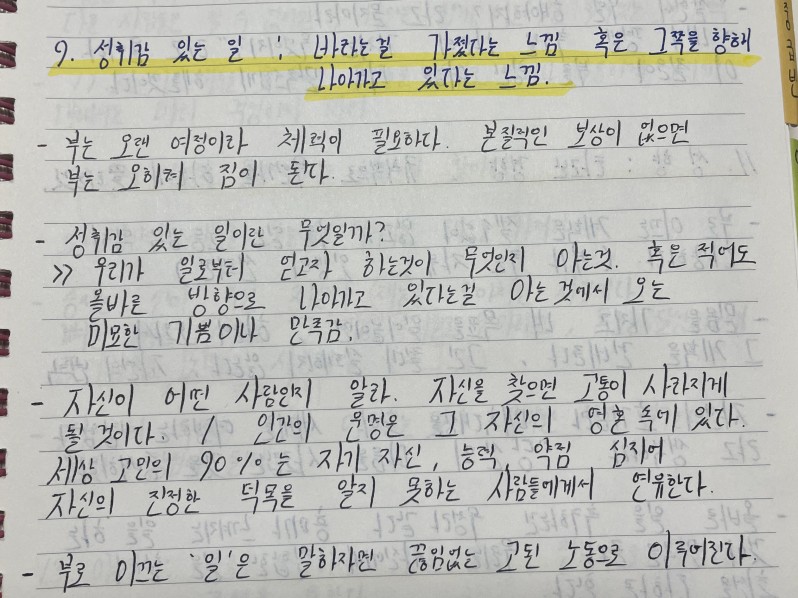 9. 성취감 있는 일 : 바라는걸 가졌다는 느낌 혹은 그쪽을 향해
나아가고 있다는 느낌.
- 부는 오랜 여정이라 체력이 필요하다. 본질적인 보상이 없으면
부는 오히려 짐이 된다.
- 성취감 있는 일이란 무엇일까?
>> 우리가 일로부터 얻고자 하는것이 무엇인지 아는것. 혹은 적어도
올바른 방향으로 나아가고 있다는걸 아는 것에서 오는
미묘한 기쁨이나 만족감.
- 자신이 어떤 사람인지 알라. 자신을 찾으면 고통이 사라지게
될 것이다. / 인간의 운명은 그 자신의 영혼 속에 있다.
세상 고민의 90%는 자기 자신, 능력, 약점 심지어
자신의 진정한 덕목을 알지 못하는 사람들에게서 연유한다.
- 부로 이끄는 '일'은 말하자면 끊임없는 고된 노동으로 이루어진다.